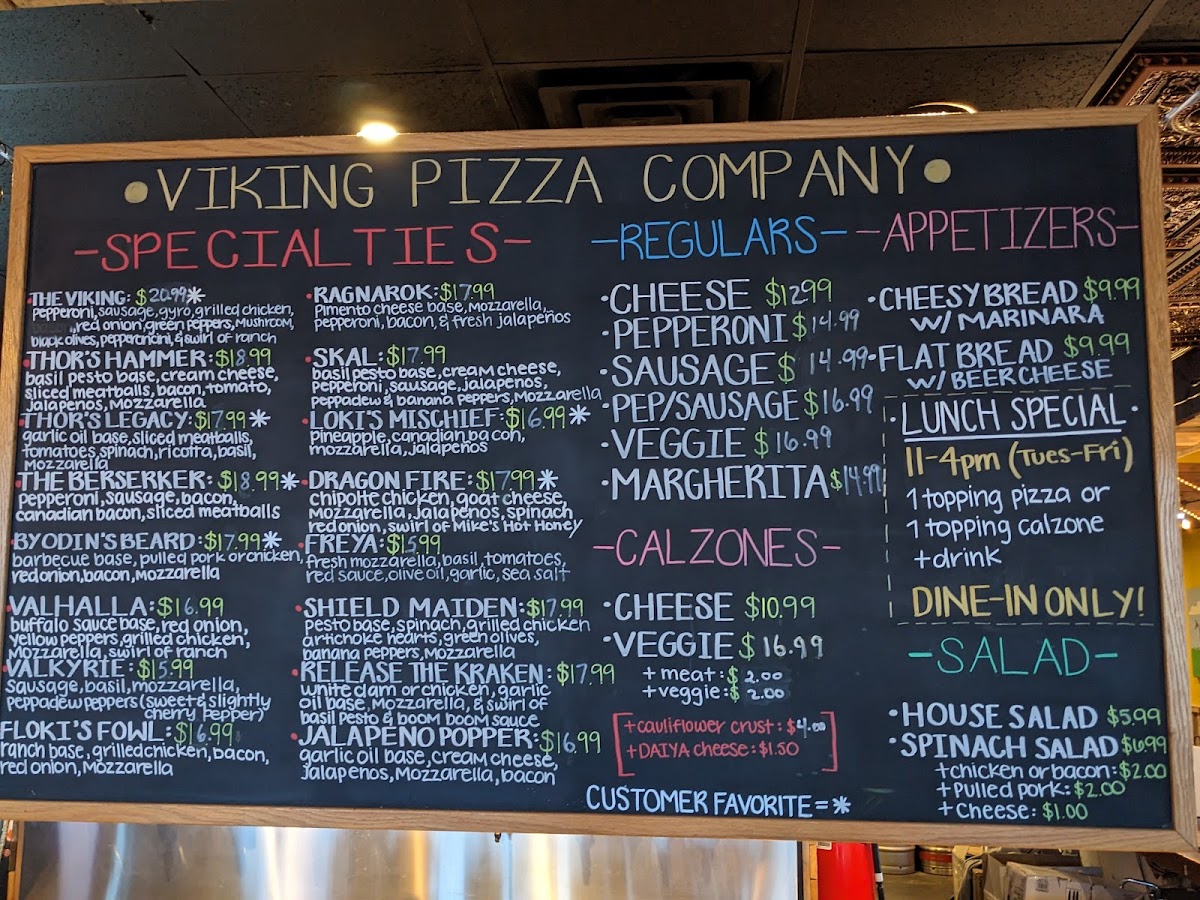 •VIKING PIZZA COMPANY•
-SPECIALTIES-
•THE VIKING: $20.99*
pepperoni, sausage, gyro, grilled chicken,
, red onion, green peppers, mushroom,
black olives, pepperoncini, & swirl of ranch
•THOR'S HAMMER: $18.99
basil pesto base, cream cheese,
sliced meatballs, bacon, tomato,
jalapenos, mozzarella
•THOR'S LEGACY: $17.99*
garlic oil base, sliced meatballs,
tomatoes, spinach, ricotta, basil,
mozzarella
•THE BERSERKER: $18.99*
pepperoni, sausage, bacon,
canadian bacon, sliced meatballs
•BYODIN'S BEARD: $17.99*
barbecue base, pulled pork or chicken,
red onion, bacon, mozzarella
•VALHALLA: $16.99
buffalo sauce base, red onion,
yellow peppers, grilled chicken,
mozzarella, swirl of ranch
•VALKYRIE: $15.99
sausage, basil, mozzarella,
peppadew peppers (sweet & slightly
cherry pepper)
FLOKI'S FOWL: $16.99
ranch base, grilled chicken, bacon,
red onion, mozzarella
•RAGNAROK: $17.99
Pimento cheese base, mozzarella,
pepperoni, bacon, & fresh jalapeños
•SKAL: $17.99
basil pesto base, cream cheese,
pepperoni, sausage, jalapenos,
peppadew & banana peppers, mozzarella
•LOKI'S MISCHIEF: $16.99*
pineapple, canadian bacon,
mozzarella, jalapeños
•DRAGON FIRE: $17.99*
chipotle chicken, goat cheese,
mozzarella, jalapenos, spinach
red onion, swirl of Mike's Hot Honey
•FREYA: $15.99
fresh mozzarella, basil, tomatoes,
red sauce, olive oil, garlic, sea salt
•SHIELD MAIDEN: $17.99
pesto base, spinach, grilled chicken
artichoke hearts, green olives,
banana peppers, mozzarella
•RELEASE THE KRAKEN: $17.99
white clam or chicken, garlic
oil base, mozzarella, & swirl of
basil pesto & boom boom sauce
•JALAPENO POPPER: $16.99
garlic oil base, cream cheese,
jalapenos, mozzarella, bacon
-REGULARS-
•CHEESE $12.99
•PEPPERONI $14.99
•SAUSAGE $14.99
•PEP/SAUSAGE $16.99
•VEGGIE $16.99
•MARGHERITA $14.99
-CALZONES-
•CHEESE $10.99
•VEGGIE $16.99
+meat: $2.00
+veggie: $2.00
[+cauliflower crust: $4.00
+DAIYA cheese: $1.50]
CUSTOMER FAVORITE = *
-APPETIZERS-
•CHEESY BREAD $9.99
W/ MARINARA
•FLAT BREAD $9.99
W/ BEER CHEESE
•LUNCH SPECIAL•
11-4pm (Tues-Fri)
1 topping pizza or
1 topping calzone
+drink
DINE-IN ONLY!
-SALAD-
•HOUSE SALAD $5.99
•SPINACH SALAD $6.99
+chicken or bacon: $2.00
+Pulled pork: $2.00
+Cheese: $1.00